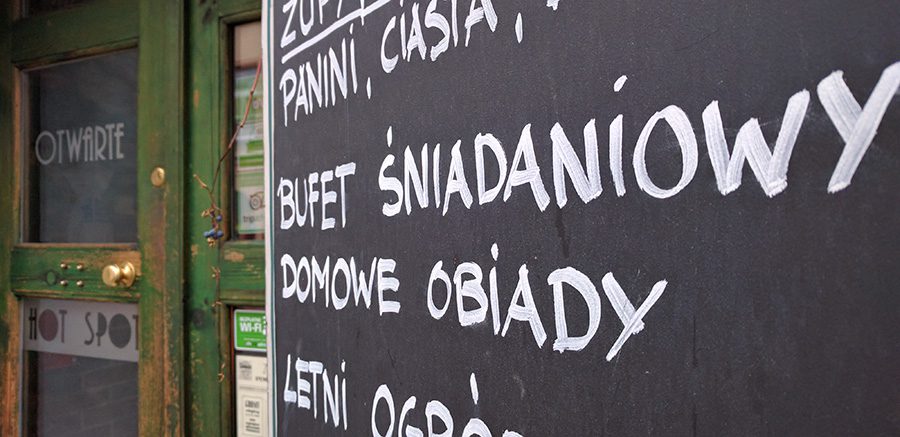 OTWARTE
HOT SPOT
WI-FI
PANINI, CIASTA,
BUFET ŚNIADANIOWY
DOMOWE OBIADY
LETNI OGRÓ